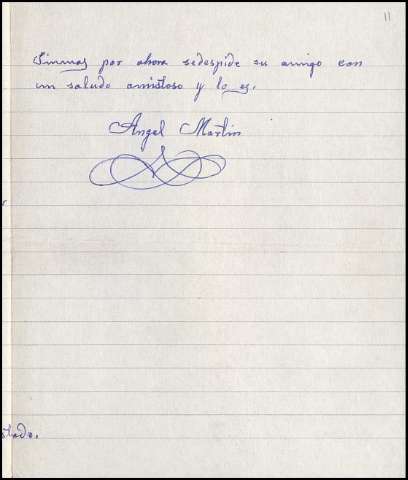 11
Sinmas por ahora sedespide su amigo con
un saludo amistoso y lo es.
Angel Martin